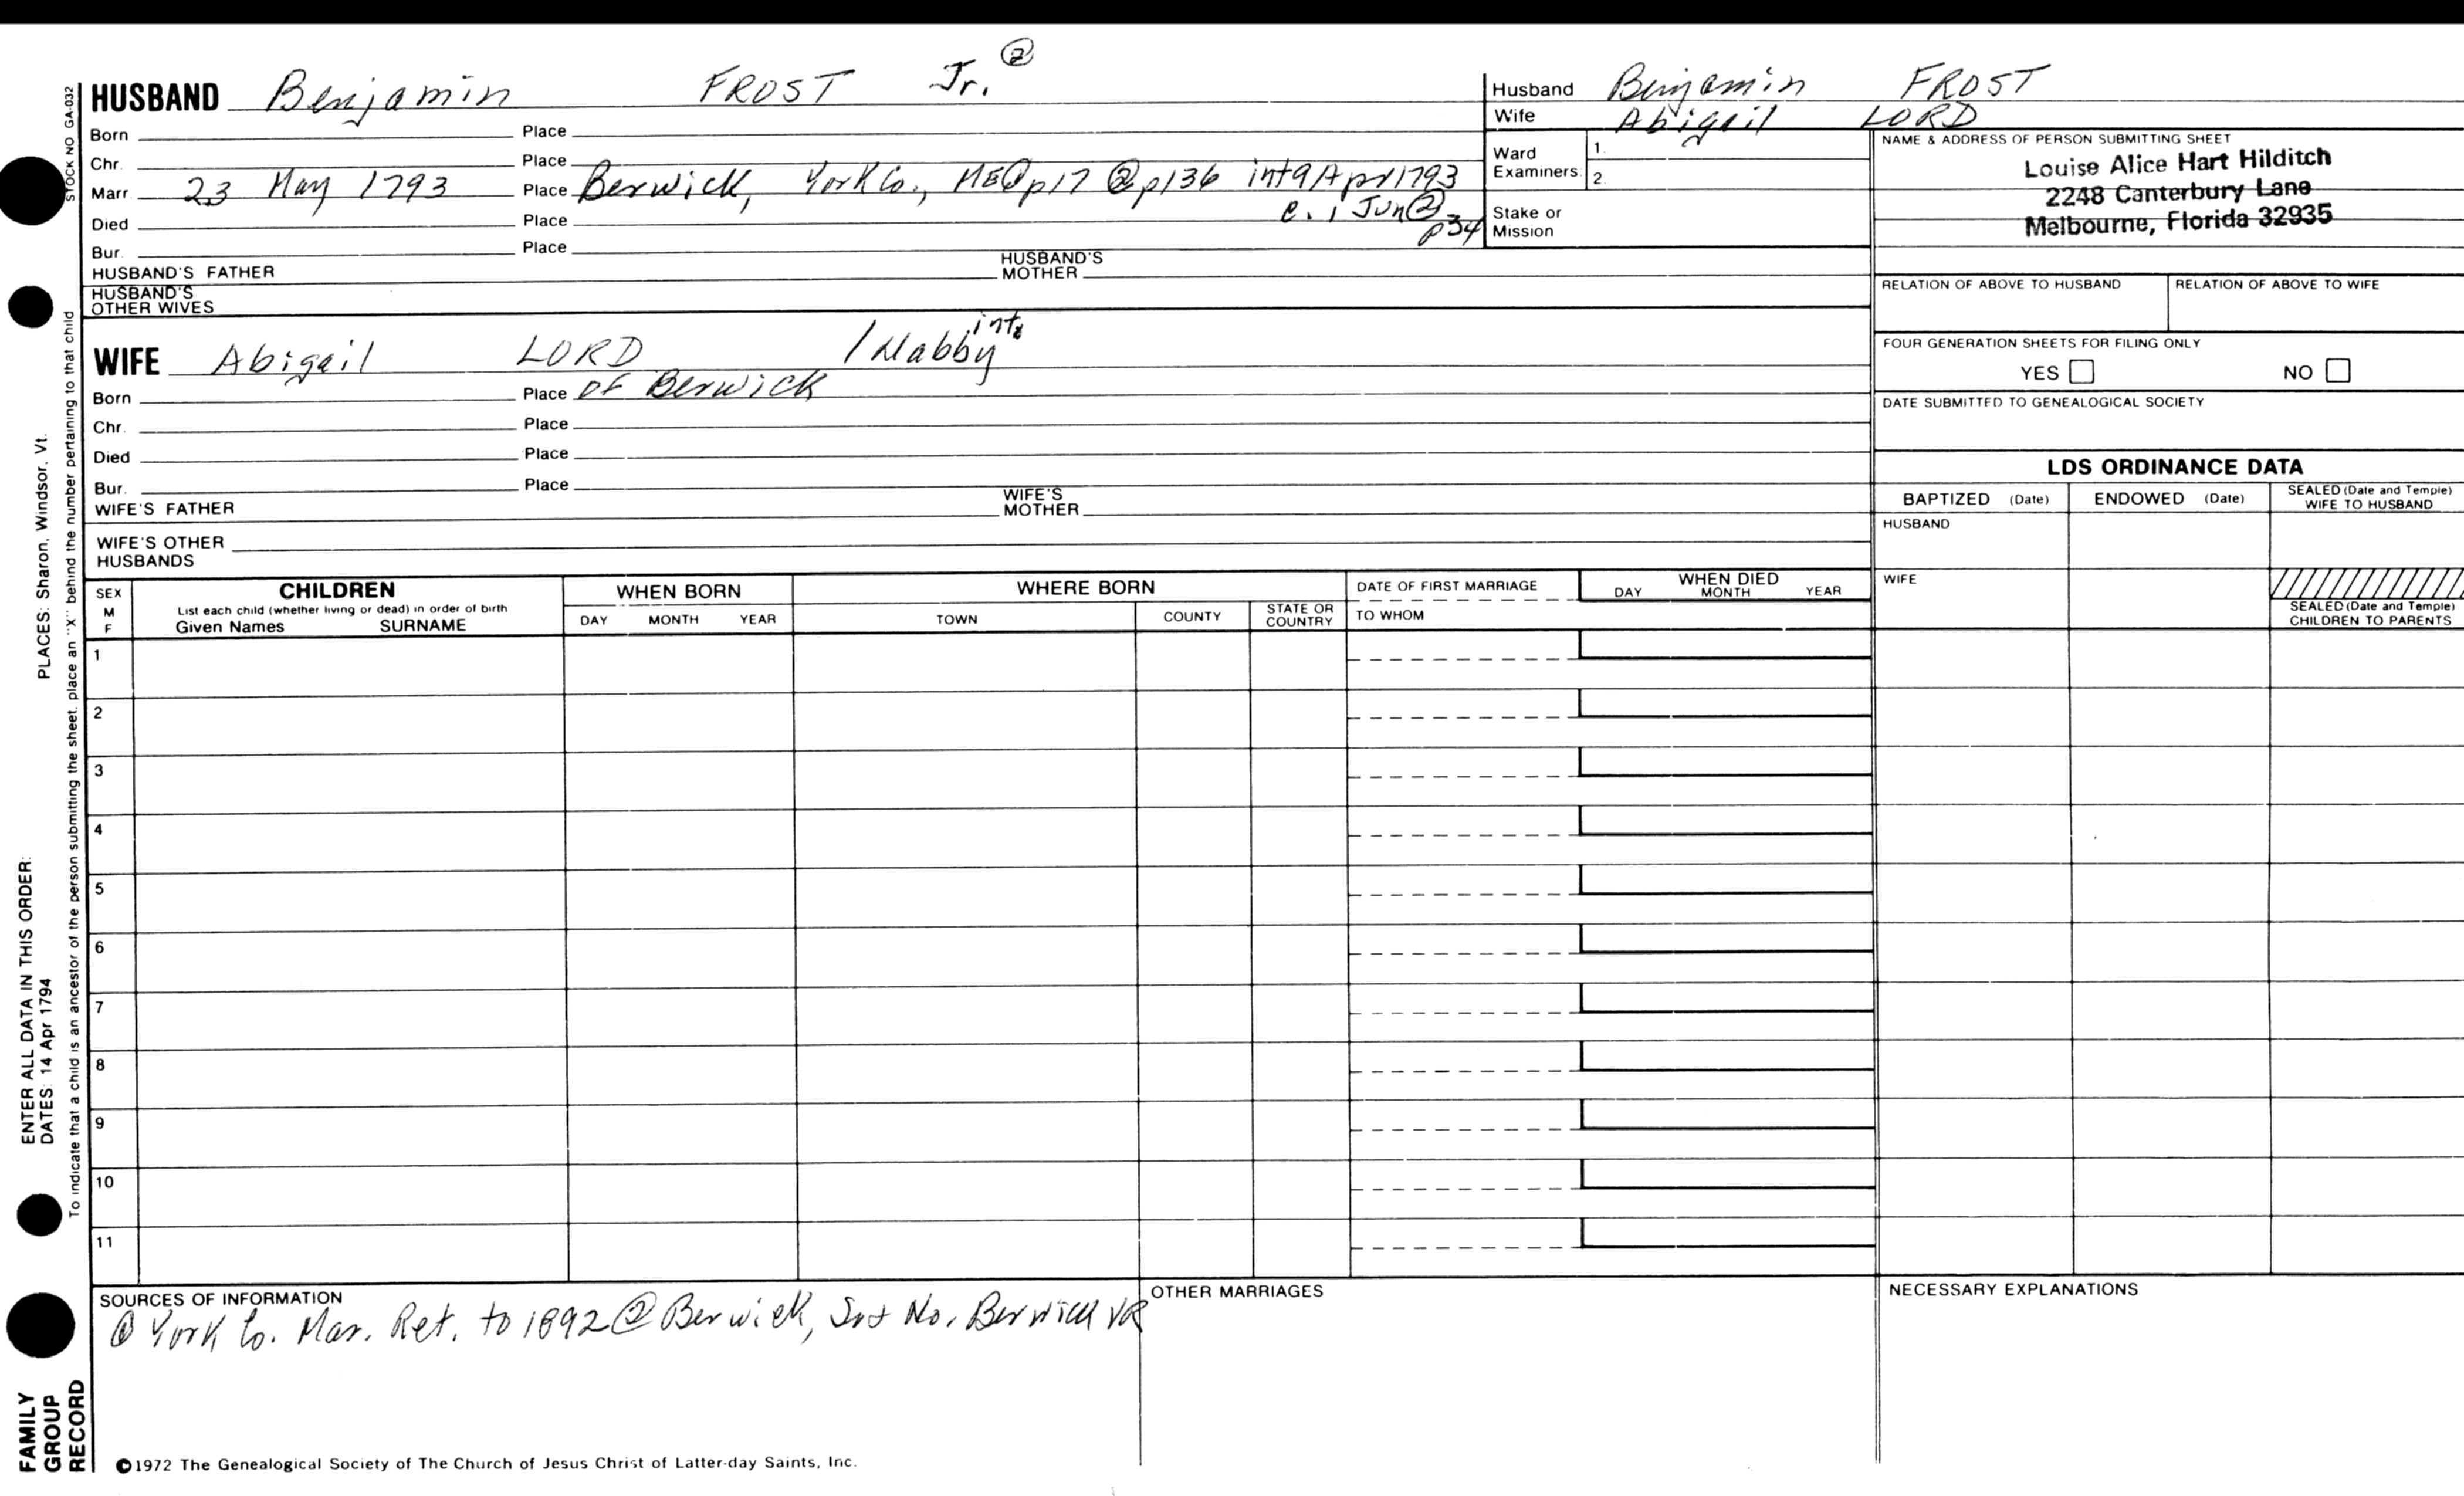 HUSBAND Benjamin FROST Jr. ②
Born Place
Chr. Place
Marr. 23 May 1793 Place Berwick, York Co., ME ① p17 ② p136 int 9 Apr 1793
c. 1 Jun ② p34
Died Place
Bur. Place
HUSBAND'S FATHER HUSBAND'S MOTHER
HUSBAND'S OTHER WIVES
Husband Benjamin FROST
Wife Abigail LORD
Ward Examiners 1. 2.
Stake or Mission
NAME & ADDRESS OF PERSON SUBMITTING SHEET
Louise Alice Hart Hilditch
2248 Canterbury Lane
Melbourne, Florida 32935
RELATION OF ABOVE TO HUSBAND RELATION OF ABOVE TO WIFE
FOUR GENERATION SHEETS FOR FILING ONLY
YES NO
DATE SUBMITTED TO GENEALOGICAL SOCIETY
WIFE Abigail LORD / Nabby int.
Born Place of Berwick
Chr. Place
Died Place
Bur. Place
WIFE'S FATHER WIFE'S MOTHER
WIFE'S OTHER HUSBANDS
LDS ORDINANCE DATA
BAPTIZED (Date) ENDOWED (Date) SEALED (Date and Temple) WIFE TO HUSBAND
HUSBAND
WIFE
SEALED (Date and Temple) CHILDREN TO PARENTS
SEX M F
CHILDREN
List each child (whether living or dead) in order of birth
Given Names SURNAME
WHEN BORN
DAY MONTH YEAR
WHERE BORN
TOWN COUNTY STATE OR COUNTRY
DATE OF FIRST MARRIAGE
TO WHOM
WHEN DIED
DAY MONTH YEAR
1
2
3
4
5
6
7
8
9
10
11
SOURCES OF INFORMATION
① York Co. Mar. Ret. to 1892 ② Berwick, So + No. Berwick VR
OTHER MARRIAGES
NECESSARY EXPLANATIONS
©1972 The Genealogical Society of The Church of Jesus Christ of Latter-day Saints, Inc.
STOCK NO GA-032
To indicate that a child is an ancestor of the person submitting the sheet, place an "X" behind the number pertaining to that child
ENTER ALL DATA IN THIS ORDER:
DATES: 14 Apr 1794
PLACES: Sharon, Windsor, Vt.
FAMILY
GROUP
RECORD